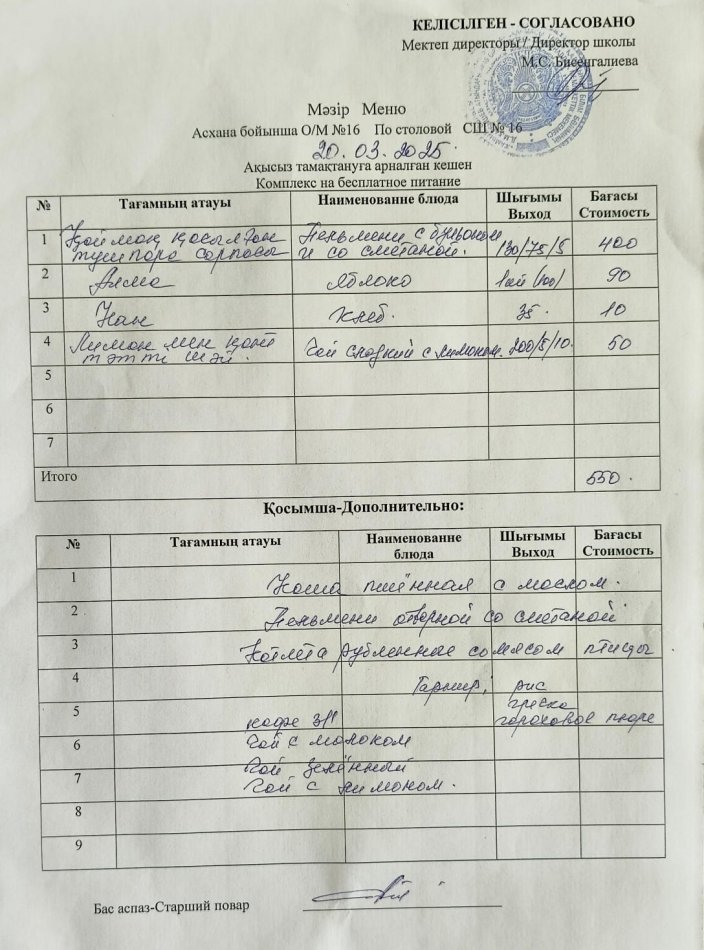 КЕЛІСІЛГЕН - СОГЛАСОВАНО
Мектеп директоры / Директор школы
М.С. Бисенгалиева
Мәзір Меню
Асхана бойынша О/М №16 По столовой СШ № 16
20.03.2025.
Ақысыз тамақтануға арналған кешен
Комплекс на бесплатное питание
№ Тағамның атауы Наименованне блюда Шығымы Выход Бағасы Стоимость
1 Қаймақ қосылған тұшпара сорпасы Пельмени с бульоном и со сметаной. 130/75/5 400
2 Алма Яблоко 1 90
3 Нан Хлеб. 35. 10
4 Лимон мен қант тәтті шәй. Чай сладкий с лимоном. 200/5/10. 50
5
6
7
Итого 550.
Қосымша-Дополнительно:
№ Тағамның атауы Наименованне блюда Шығымы Выход Бағасы Стоимость
1 Каша пшённая с маслом.
2 Пельмени отварной со сметаной
3 Котлета рубленные со мясом птицы
4 Гарнир: рис
гречка
5 кофе 3/1 гороховое пюре
6 Чай с молоком
Чай зелённый
7 Чай с лимоном.
8
9
Бас аспаз-Старший повар